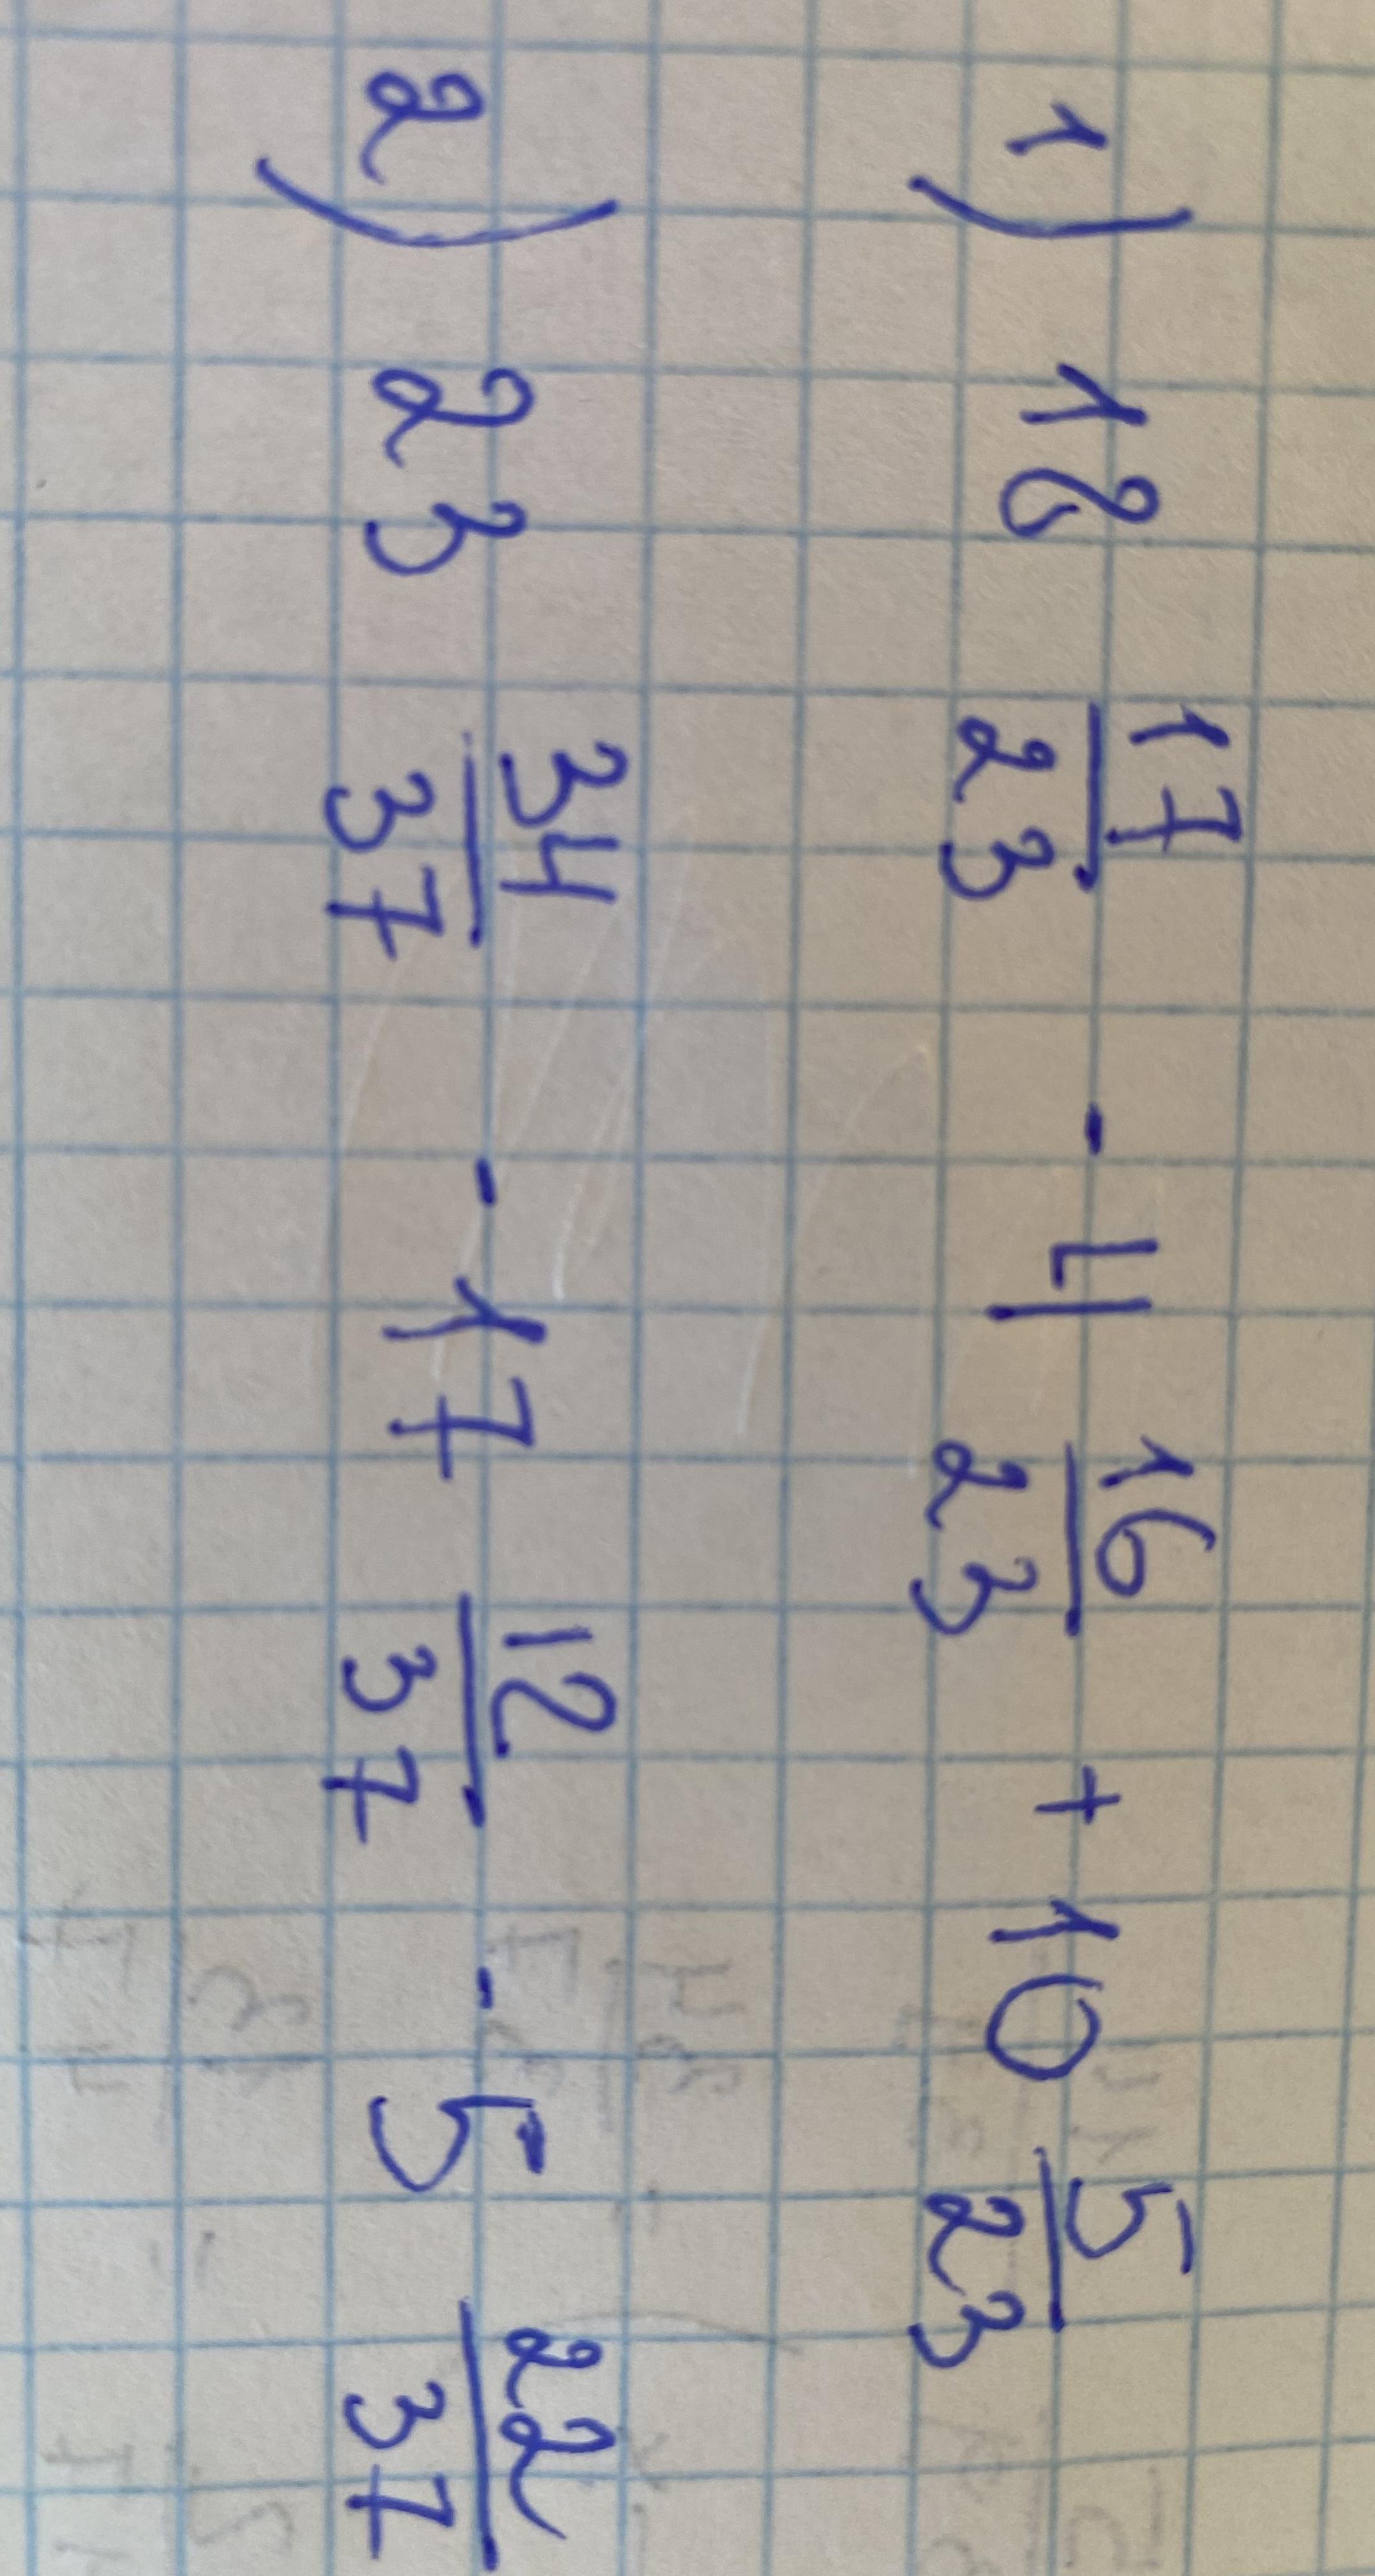 1) 18 17/23 - 4 16/23 + 10 5/23
2) 23 34/37 - 17 12/37 - 5 22/37